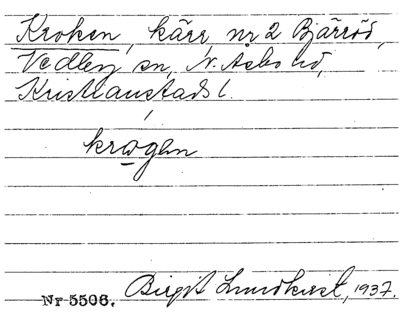 Kroken, kärr, nr 2 Bjärröd,
Vedby sn, N. Åsbo hd,
Kristianstads l.
krogen
Nr 5506. Birgit Lundkvist, 1937.